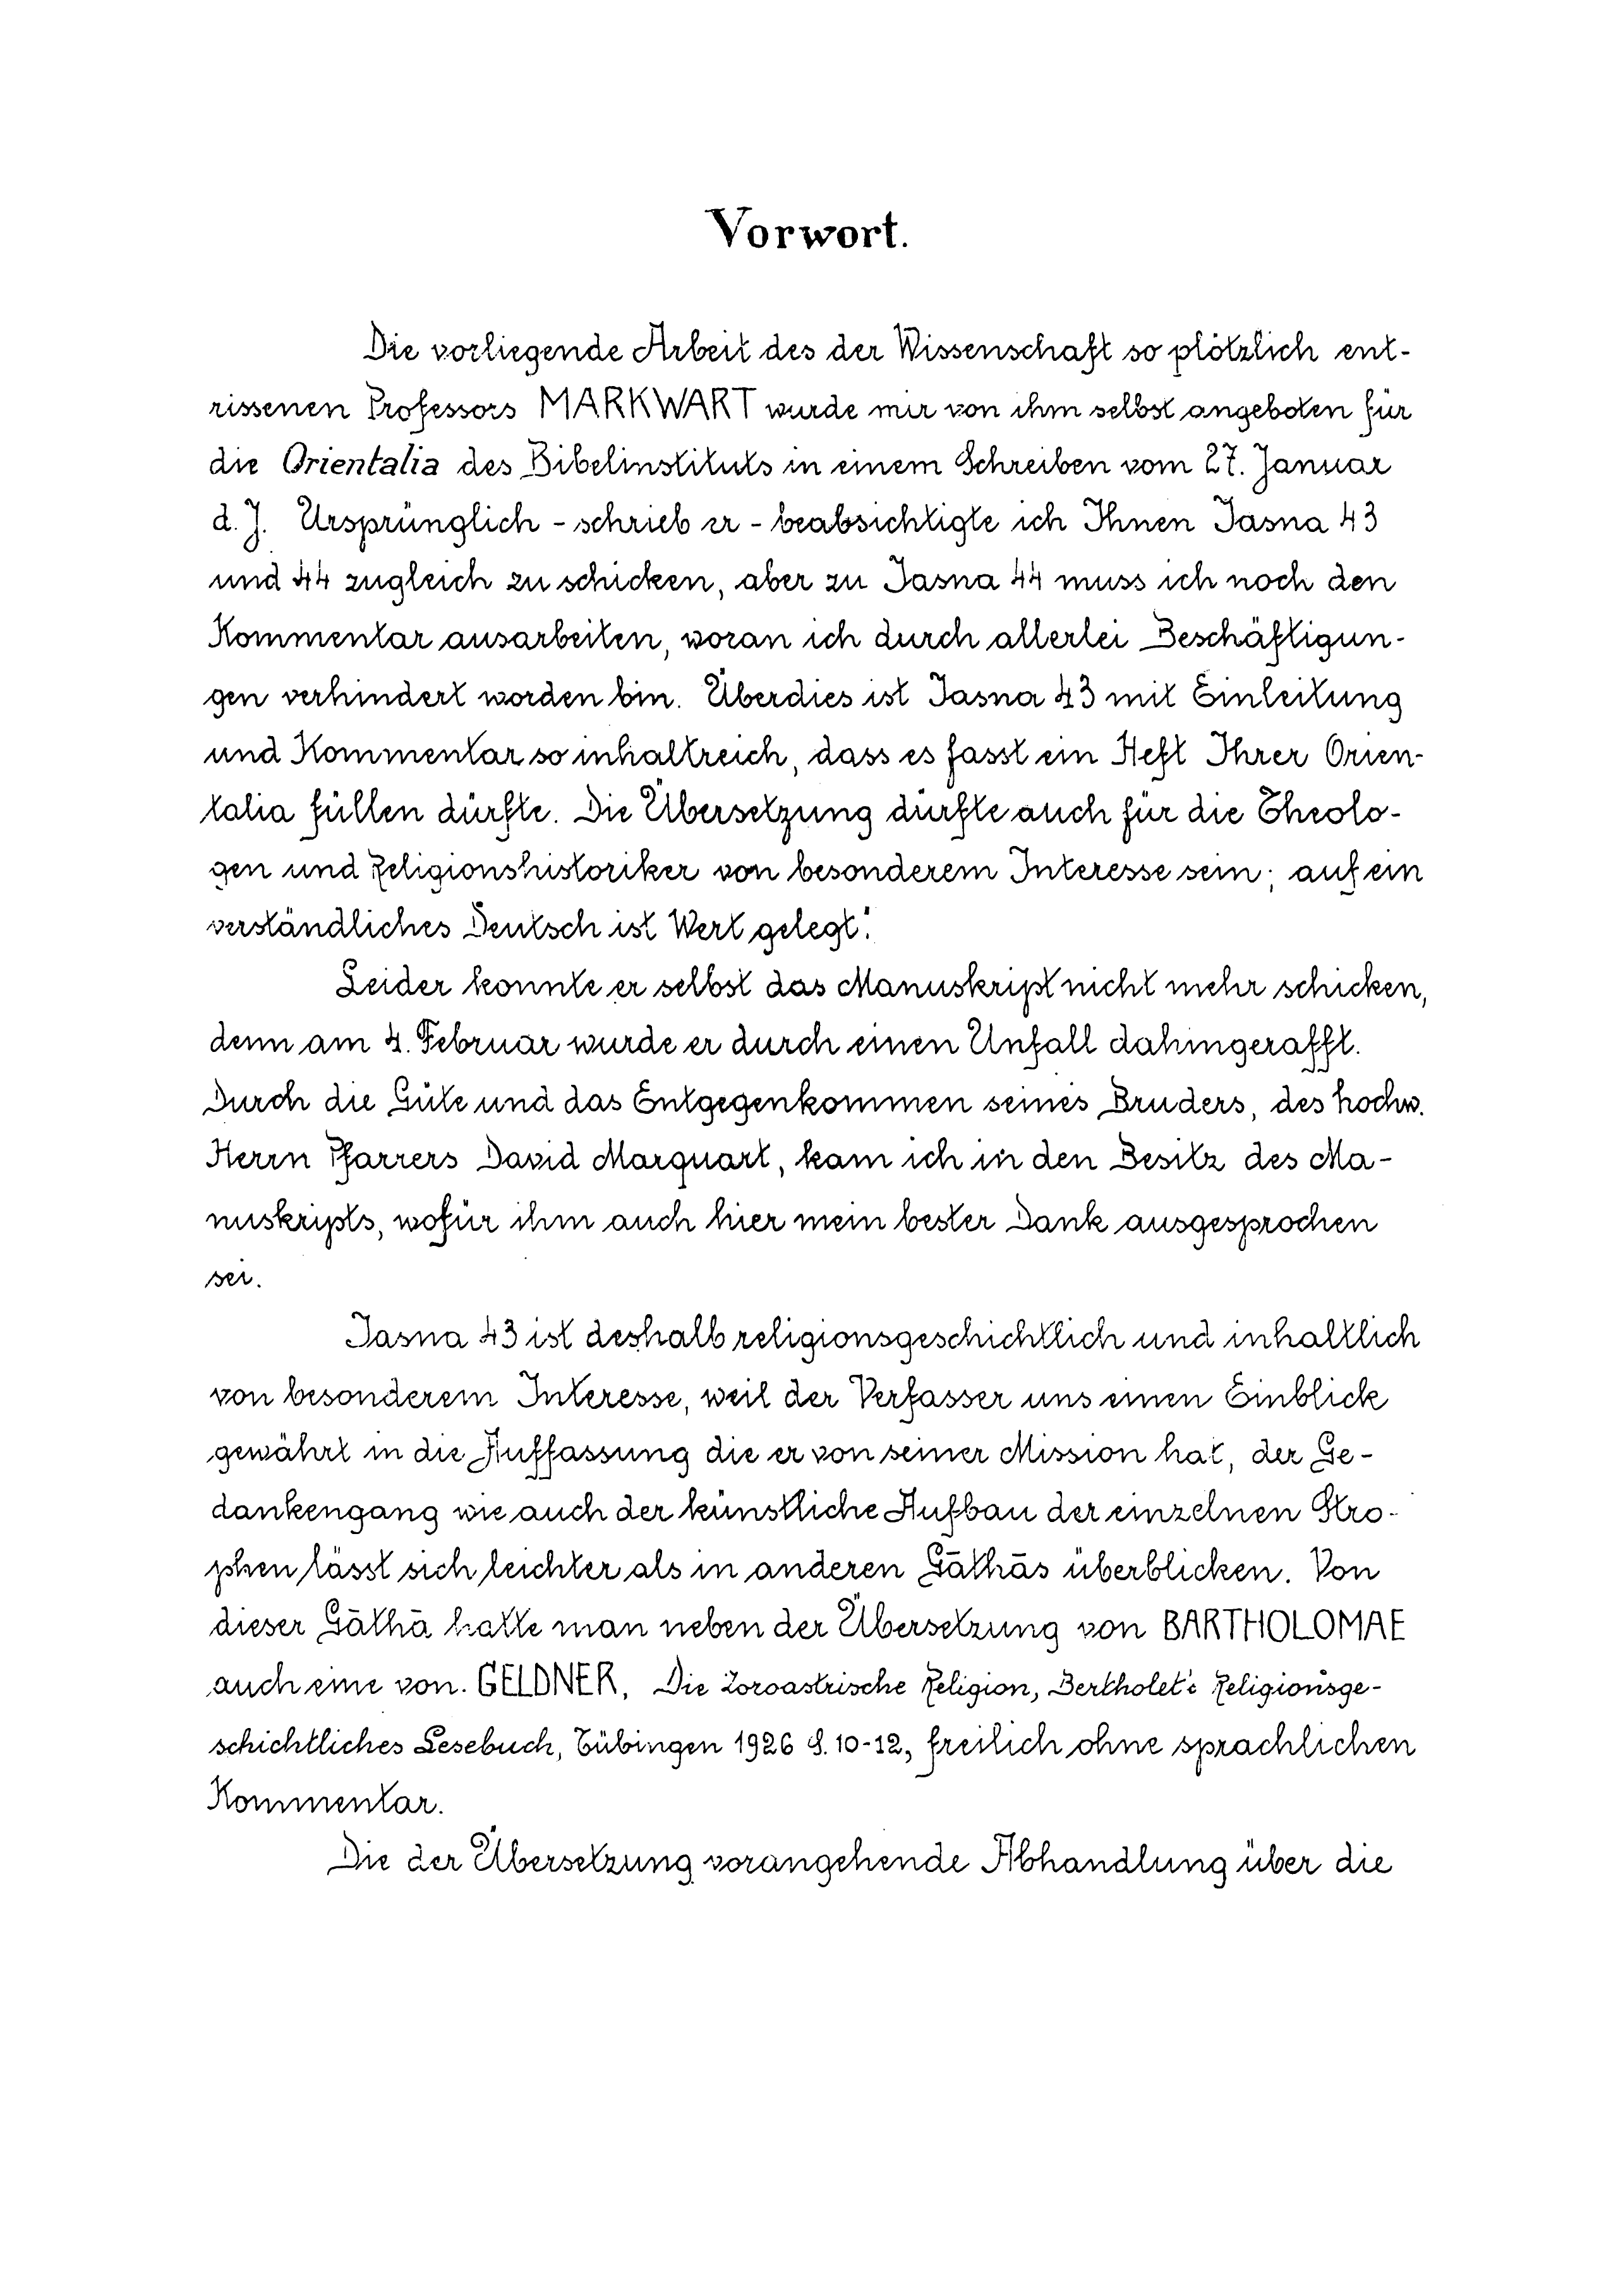 Vorwort.
Die vorliegende Arbeit des der Wissenschaft so plötzlich ent-
rissenen Professors MARKWART wurde mir von ihm selbst angeboten für
die Orientalia des Bibelinstituts in einem Schreiben vom 27. Januar
d. J. Ursprünglich - schrieb er - beabsichtigte ich Ihnen Jasna 43
und 44 zugleich zu schicken, aber zu Jasna 44 muss ich noch den
Kommentar ausarbeiten, woran ich durch allerlei Beschäftigun-
gen verhindert worden bin. Überdies ist Jasna 43 mit Einleitung
und Kommentar so inhaltreich, dass es fasst ein Heft Ihrer Orien-
talia füllen dürfte. Die Übersetzung dürfte auch für die Theolo-
gen und Religionshistoriker von besonderem Interesse sein; auf ein
verständliches Deutsch ist Wert gelegt."
Leider konnte er selbst das Manuskript nicht mehr schicken,
denn am 4. Februar wurde er durch einen Unfall dahingerafft.
Durch die Güte und das Entgegenkommen seines Bruders, des hochw.
Herrn Pfarrers David Marquart, kam ich in den Besitz des Ma-
nuskripts, wofür ihm auch hier mein bester Dank ausgesprochen
sei.
Jasna 43 ist deshalb religionsgeschichtlich und inhaltlich
von besonderem Interesse, weil der Verfasser uns einen Einblick
gewährt in die Auffassung die er von seiner Mission hat, der Ge-
dankengang wie auch der künstliche Aufbau der einzelnen Stro-
phen lässt sich leichter als in anderen Gāthās überblicken. Von
dieser Gāthā hatte man neben der Übersetzung von BARTHOLOMAE
auch eine von. GELDNER, Die Zoroastrische Religion, Bertholet's Religionsge-
schichtliches Lesebuch, Tübingen 1926 S. 10-12, freilich ohne sprachlichen
Kommentar.
Die der Übersetzung vorangehende Abhandlung über die